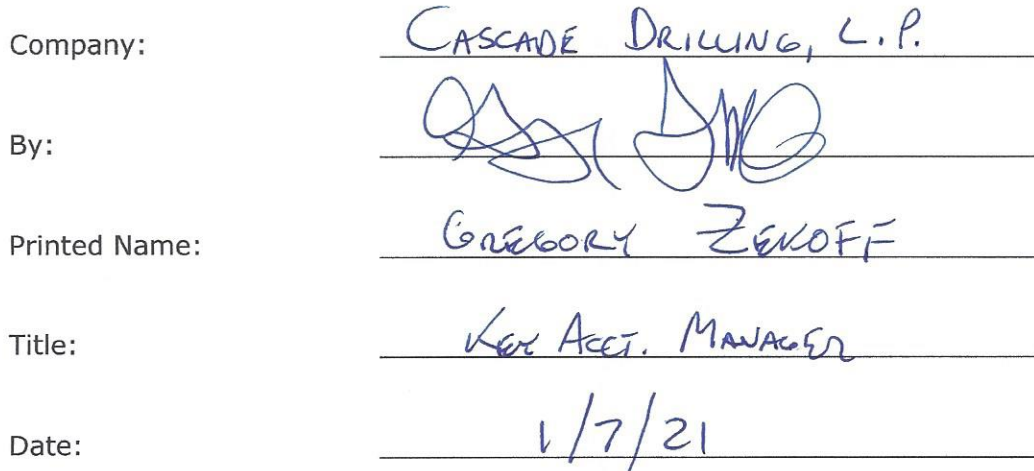 Company: CASCADE DRILLING, L.P.
By:
Printed Name: GREGORY ZEKOFF
Title: KEY ACCT. MANAGER
Date: 1/7/21